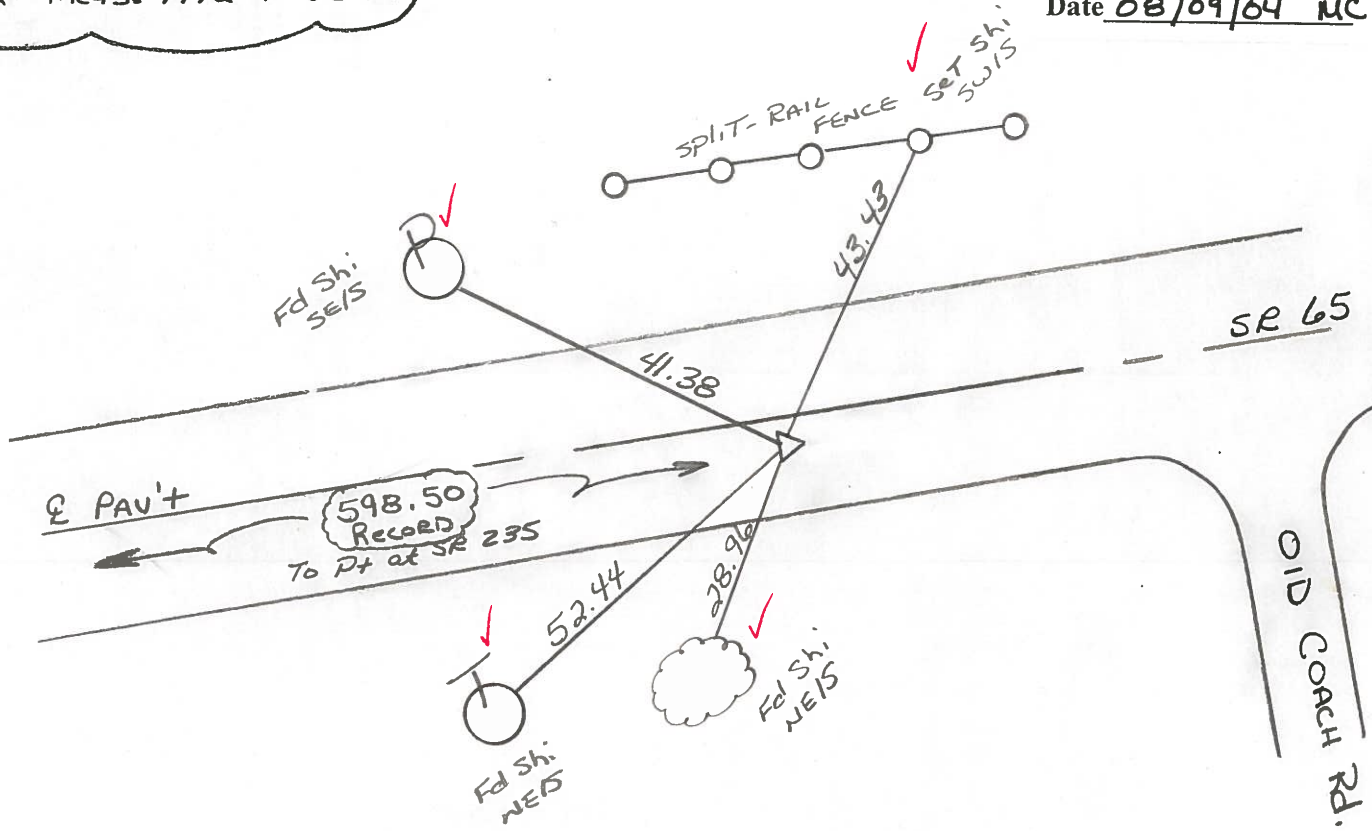 Date 08/09/04 MC
Set Shi
SW/S
SPliT-RAIL
FENCE
43.43
Fd Shi
SE/S
41.38
SR 65
℄ PAV'+
598.50
RECORD
To P+ at SR 235
52.44
28.96
Fd Shi
NE/S
Fd Shi
NE/S
OlD COACH Rd.